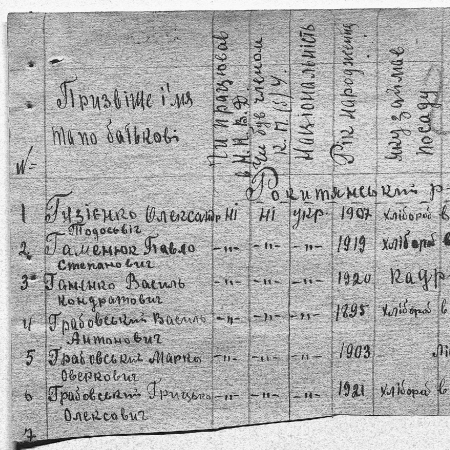 №
Призвіще і'мя
та по батькові
Чи працював
в Н.К.В.Д
Чи був членом
К.П./б/У.
Національність
Рік народження
Яку займав
посаду
Рокитянський р-
1 Гузієнко Олександр ні ні укр. 1907 хлібороб в
Тодосьвіч
2 Гаменюк Павло -"- -"- -"- 1919 хлібороб
Степанович
3 Ганенко Василь -"- -"- -"- 1920 кадр-
Кондратович
4 Грабовський Василь -"- -"- -"- 1895 хлібороб в
Антонович
5 Грабовський Марко -"- -"- -"- 1903
Оверкович
6 Грабовський Грицько -"- -"- -"- 1921 хлібороб в
Олексович
7